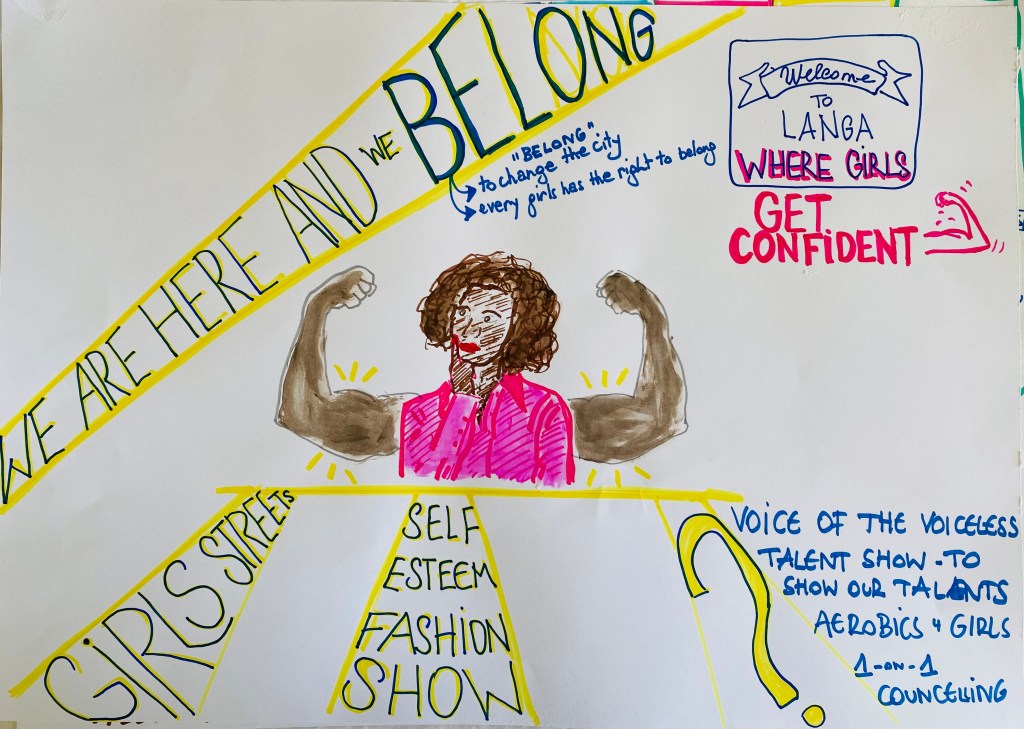 WE ARE HERE AND WE BELONG
"BELONG"
to change the city
every girls has the right to belong
Welcome
TO
LANGA
WHERE GIRLS
GET
CONFIDENT
GIRLS STREETS
SELF
ESTEEM
FASHION
SHOW
?
VOICE OF THE VOICELESS
TALENT SHOW - TO
SHOW OUR TALANTS
AEROBICS 4 GIRLS
1-on-1
COUNCELLING